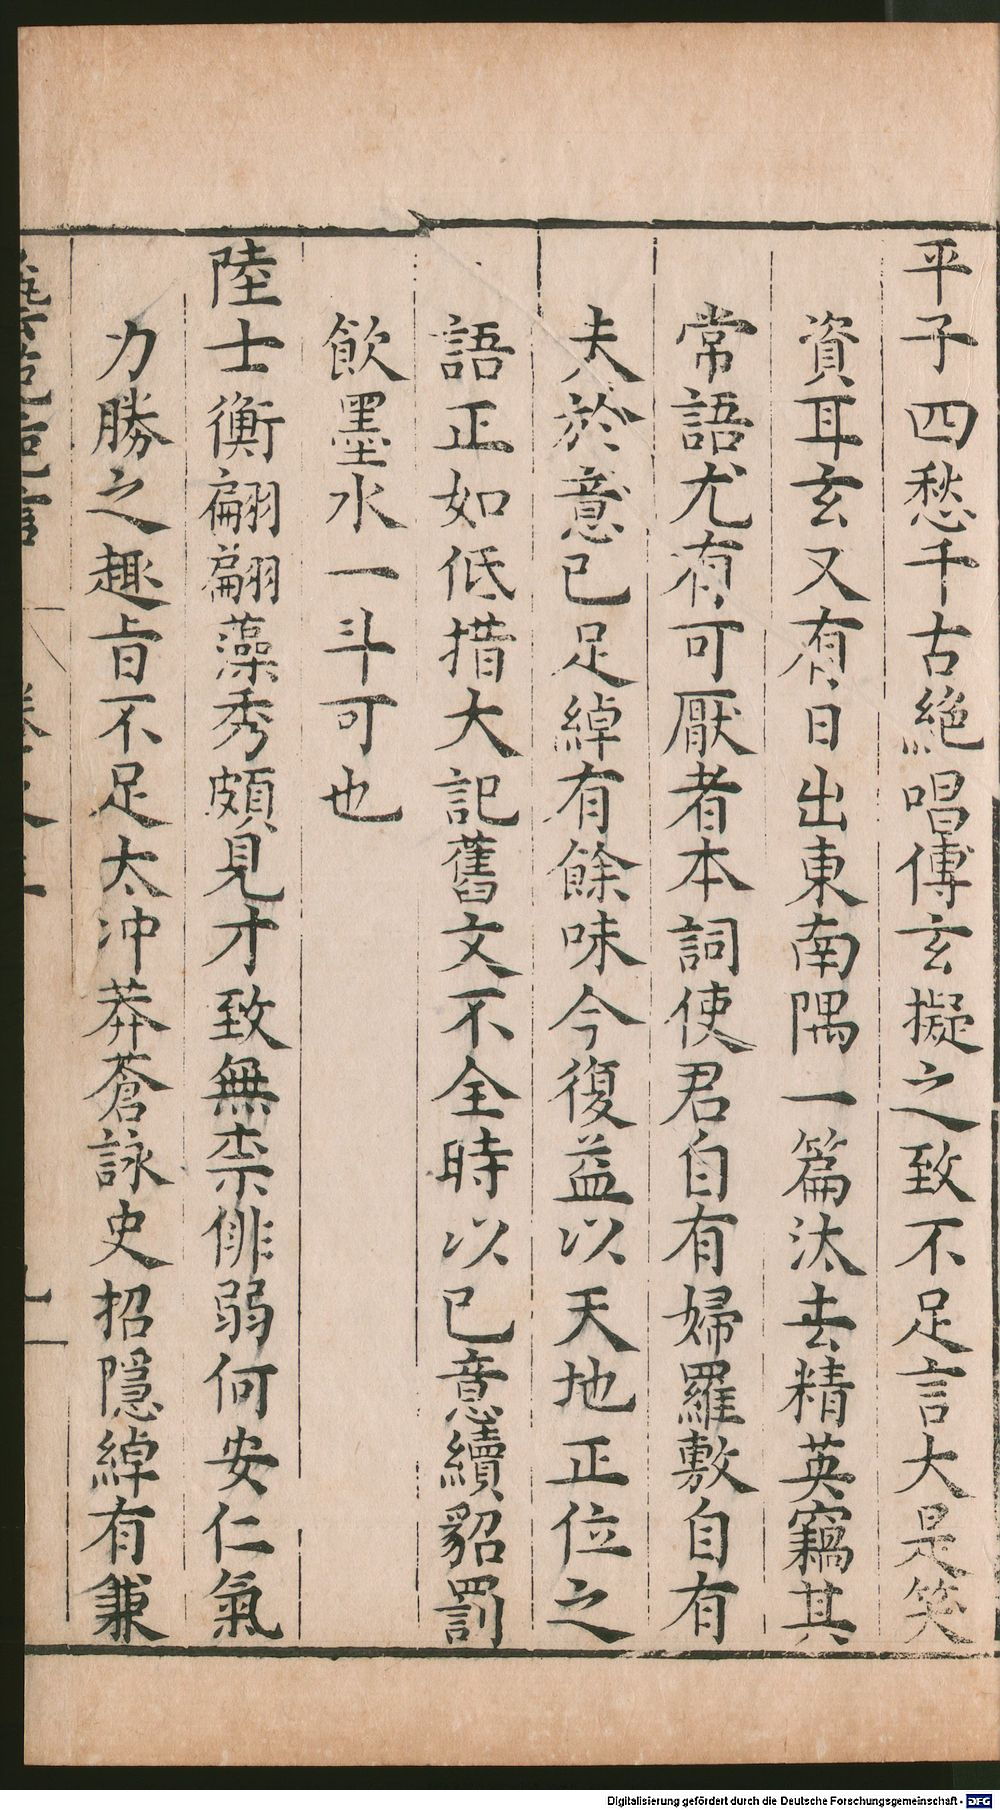 平子四愁千古絕唱傅玄擬之致不足言大是笑
資耳玄又有日出東南隅一篇汰去精英竊其
常語尤有可厭者本詞使君自有婦羅敷自有
夫於意已足綽有餘味今復益以天地正位之
語正如低措大記舊文不全時以已意續貂罰
飲墨水一斗可也
陸士衡翩翩藻秀頗見才致無柰俳弱何安仁氣
力勝之趣旨不足太冲莽蒼詠史招隱綽有兼
Digitalisierung gefördert durch die Deutsche Forschungsgemeinschaft - DFG